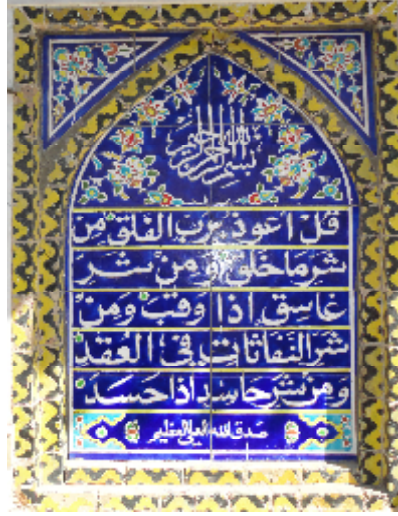 بسم الله الرحمن الرحیم
قل اعوذ برب الفلق من
شر ما خلق و من شر
غاسق اذا وقب و من
شر النفاثات فی العقد
و من شر حاسد اذا حسد
صدق الله العلی العظیم